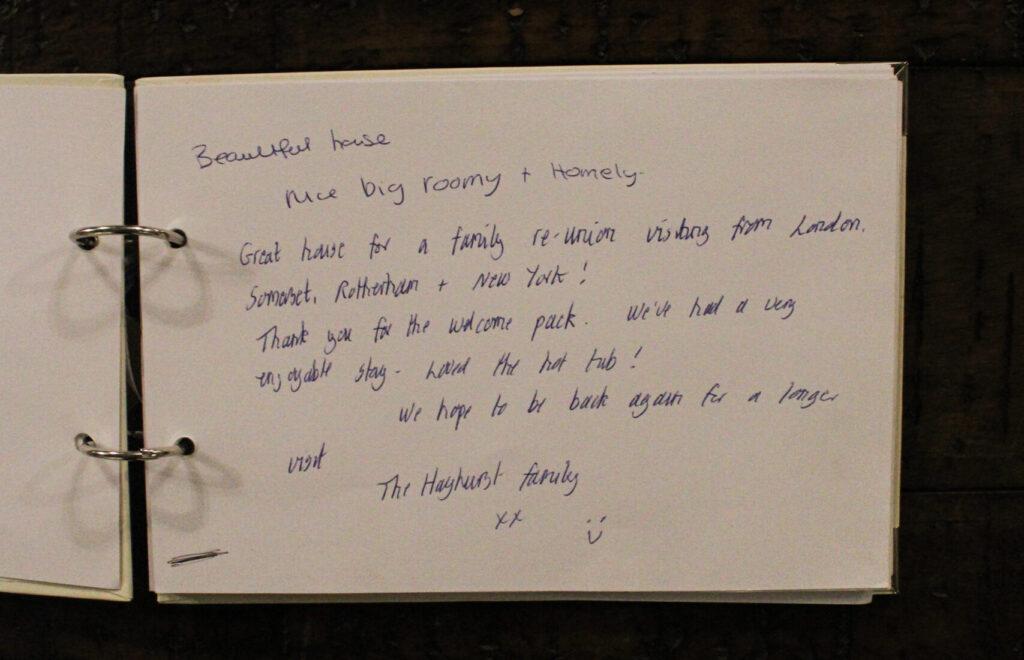 Beautiful house
Nice big roomy + Homely.
Great house for a family re-union visiting from London,
Somerset, Rotherham + New York!
Thank you for the welcome pack. We've had a very
enjoyable stay - Loved the hot tub!
We hope to be back again for a longer
visit
The Hayhurst family
xx :)